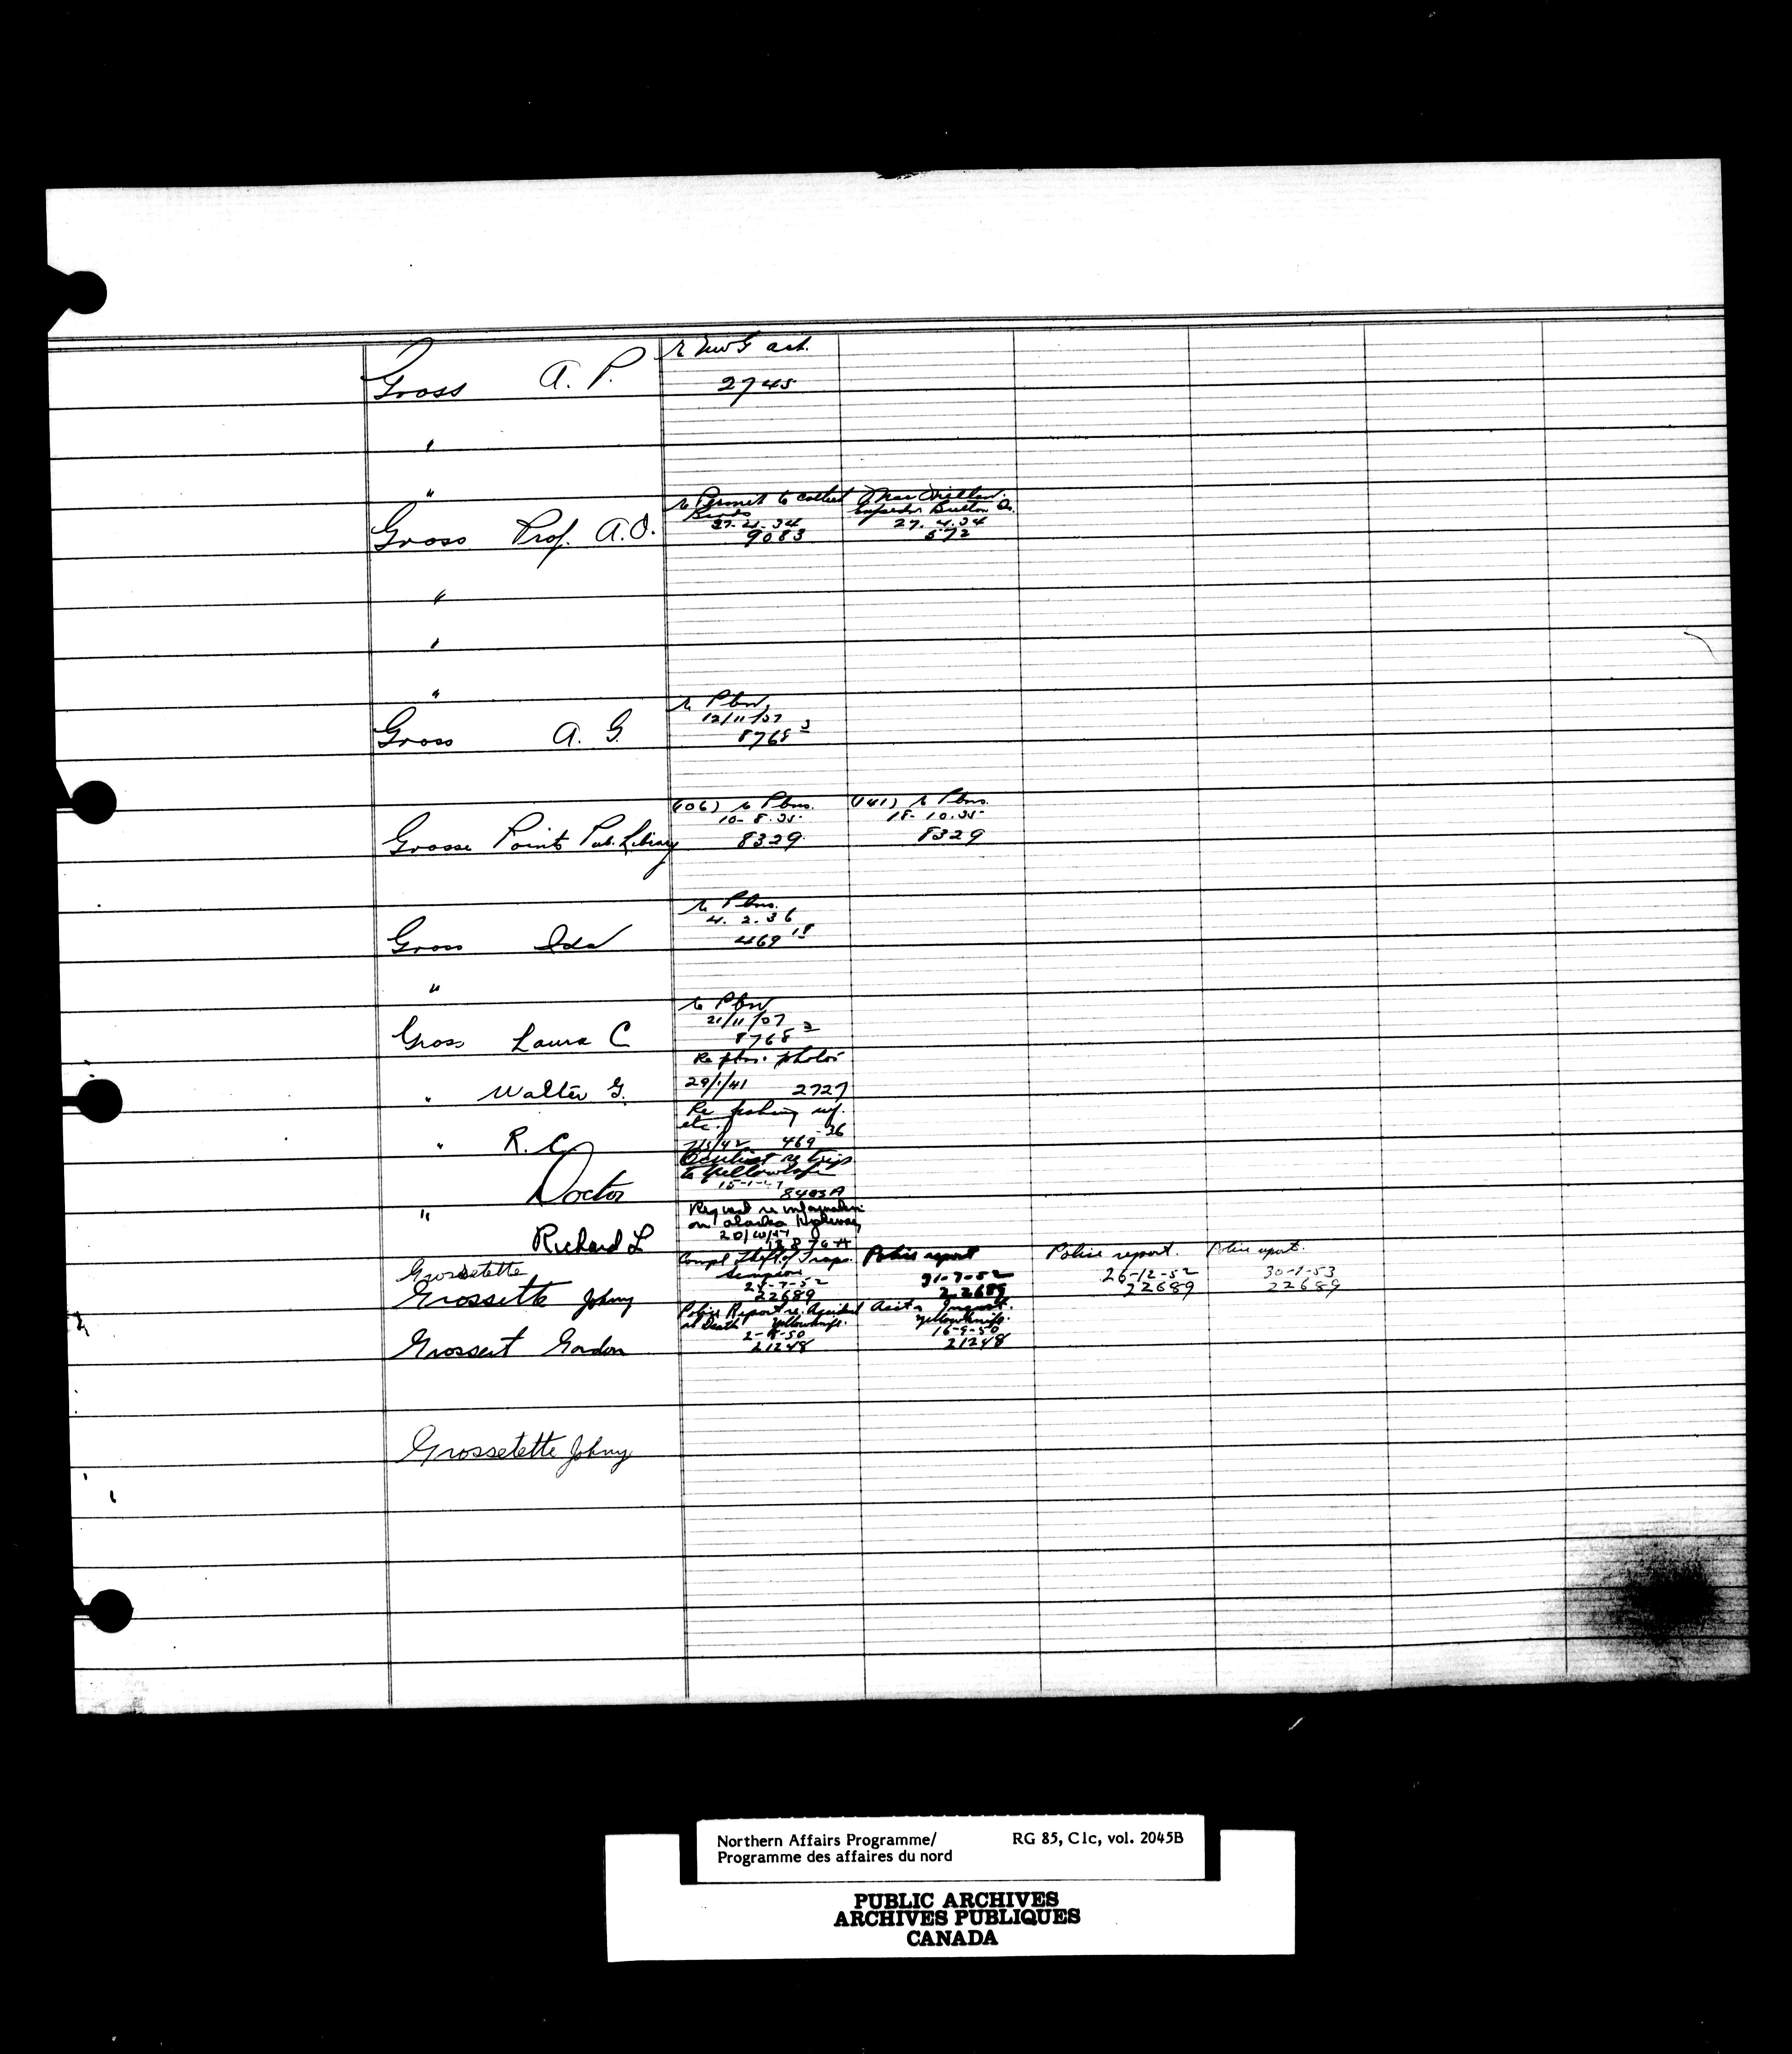 Gross A. P.
2745
"
"
Gross Prof. A.O.
re Permit to collect
Birds
27.4.34
9083
MacMillan
27.4.34
572
"
"
"
Gross A. G.
re Pbns
12/11/37
8768 3
Grosse Pointe Pub. Library
(106) re Pbns.
10-8.35
8329
(141) re Pbns.
18-10.35
8329
Gross Ida
re Pbns.
4.2.36
469 18
"
Gross Laura C
re Pbns
21/11/37
8768 3
" Walter G.
Re pbns. photos
29/1/41 2727
" R. C.
Re fishing
etc.
469-36
" Doctor
re trip
to Yellowknife
8403A
" Richard L
Request re information
on Alaska Highway
Grossetette
Grossette Johny
Compl Theft of Traps.
Simpson
22689
Police report
31-7-52
22689
Police report.
26-12-52
22689
Police report.
30-1-53
22689
Grossert Gordon
Police Report re. Accident
al Death Yellowknife.
21248
Inquest.
Yellowknife.
16-9-50
21248
Grossetette Johny
Northern Affairs Programme/ RG 85, C1c, vol. 2045B
Programme des affaires du nord
PUBLIC ARCHIVES
ARCHIVES PUBLIQUES
CANADA